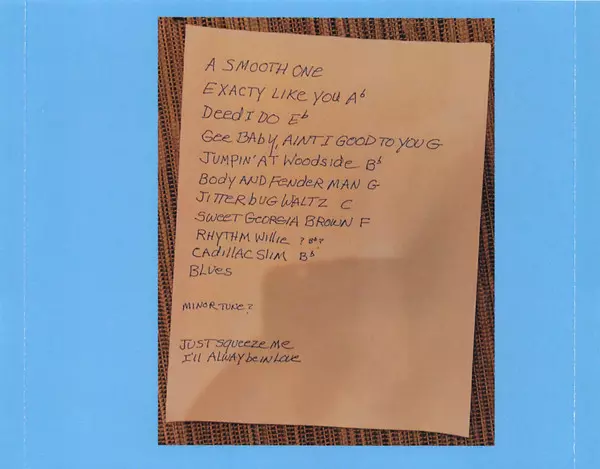 A SMOOTH ONE
EXACTY LIKE YOU A♭
Deed I DO E♭
Gee BABY, AIN'T I GOOD TO YOU G
JUMPIN' AT WOODSIDE B♭
BODY AND FENDER MAN G
JITTERBUG WALTZ C
SWEET GEORGIA BROWN F
RHYTHM WILLIE ? B♭?
CADILLAC SLIM B♭
BLUES
MINOR TUNE?
JUST SQUEEZE ME
I'll ALWAY be IN LOVE